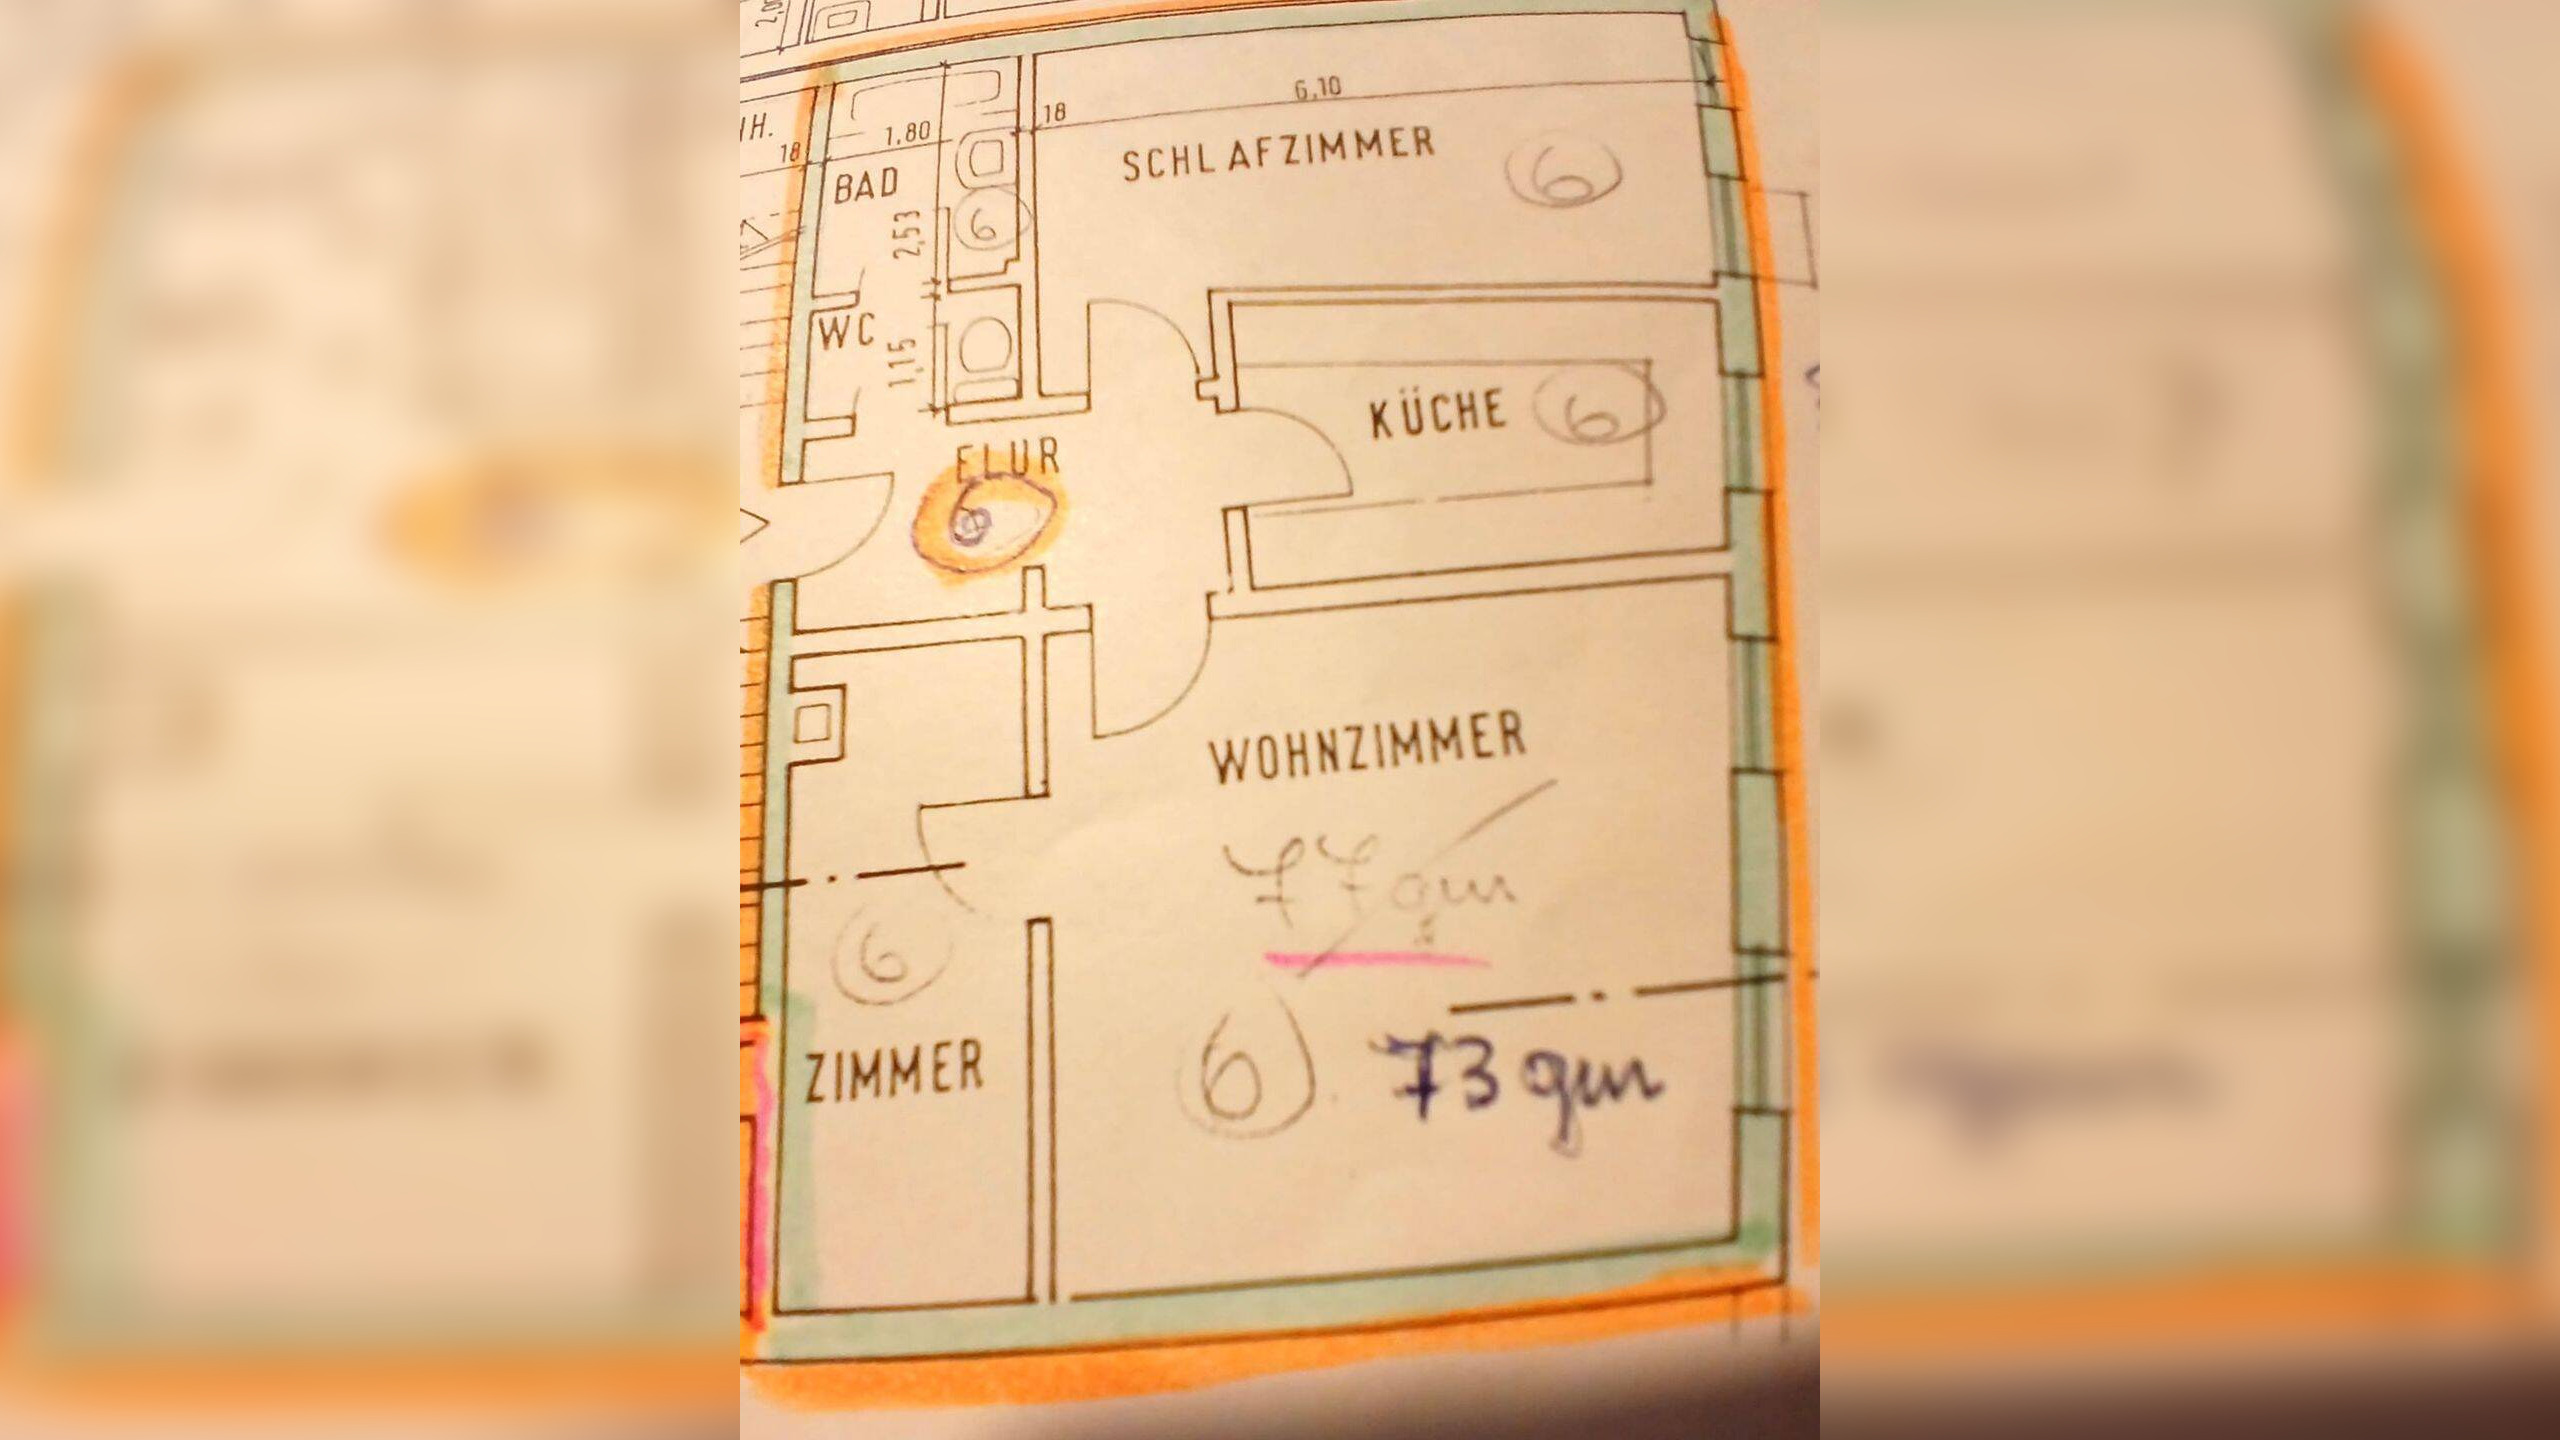 6,10
18
1,80
18
SCHLAFZIMMER
6
BAD
2,53
6
WC
1,15
KÜCHE
6
FLUR
6
WOHNZIMMER
77 qm
6
6
73 qm
ZIMMER